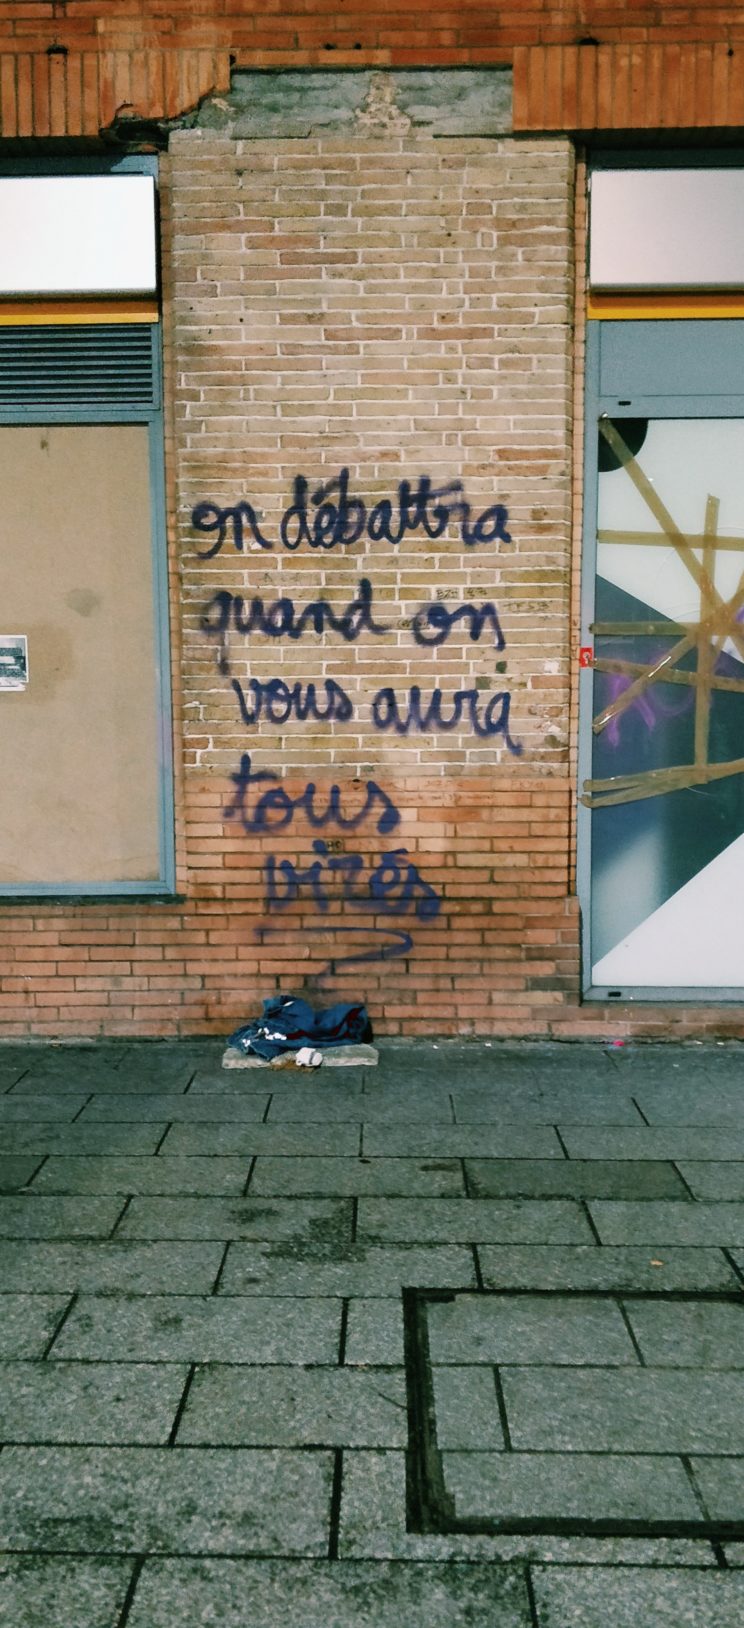 on débattra
quand on
vous aura
tous
virés